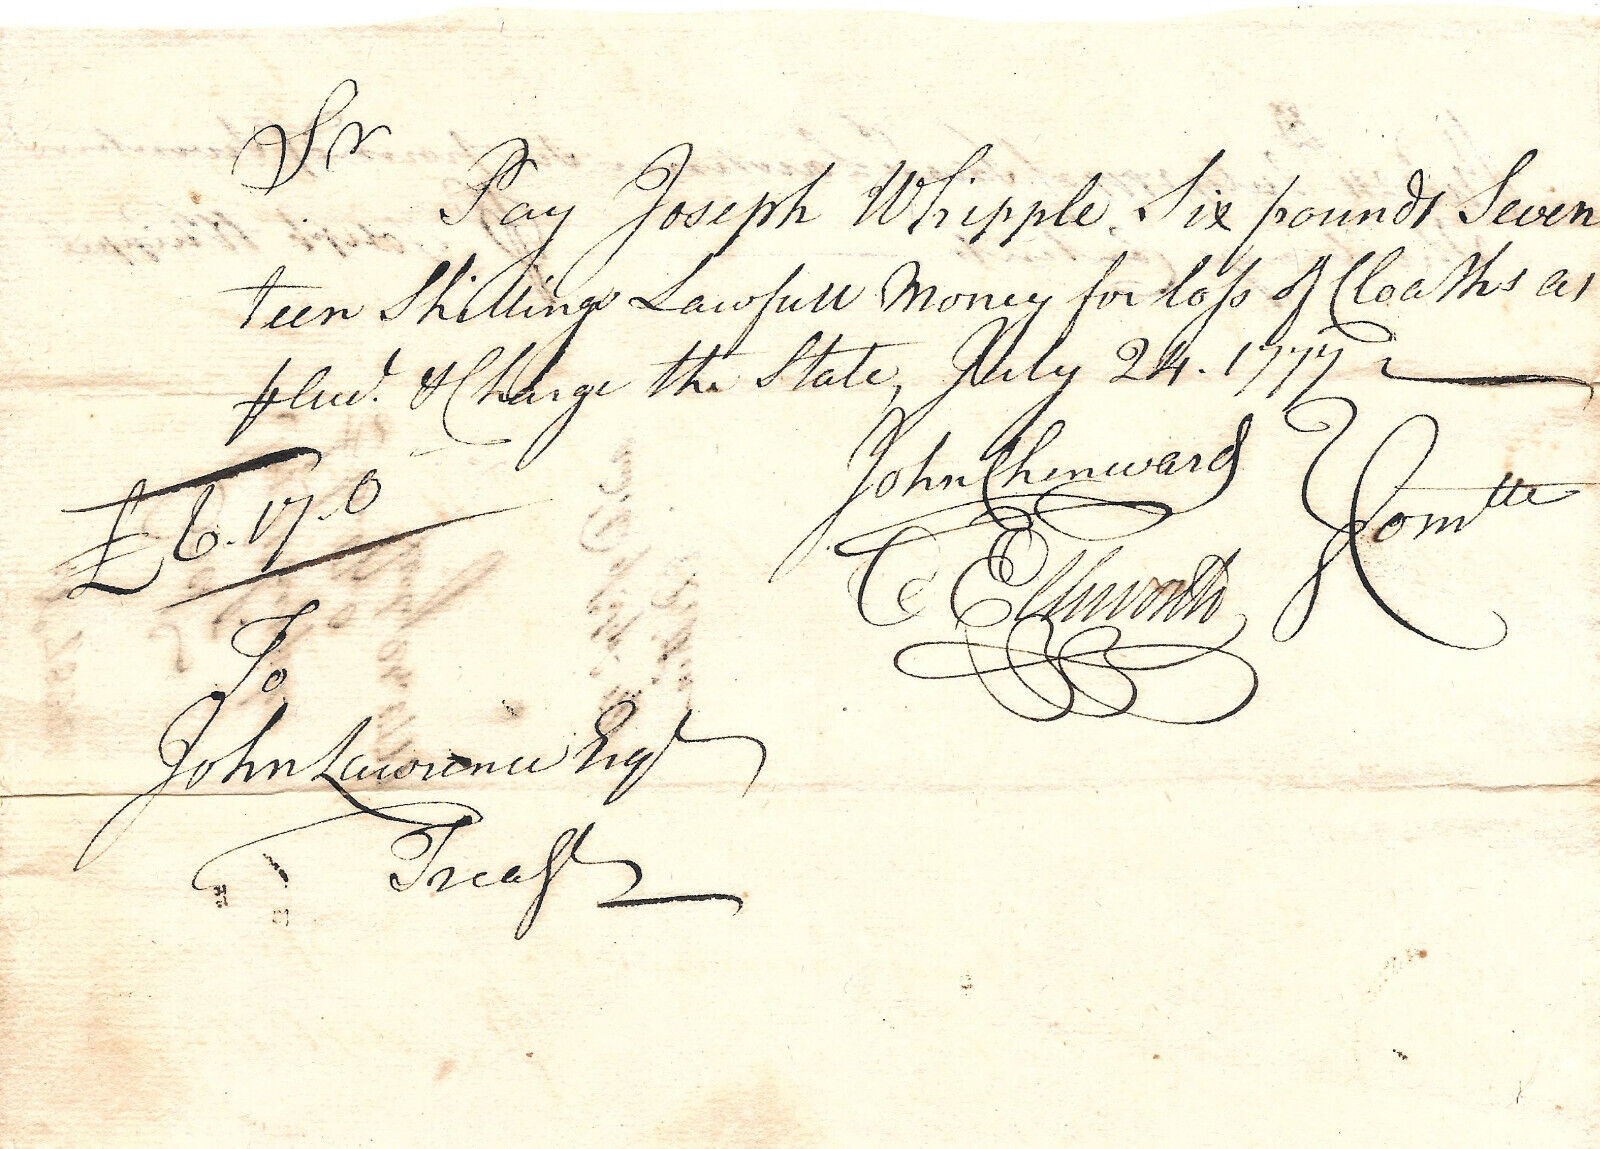 Sr
Pay Joseph Whipple, Six pounds Seven
teen Shillings Lawfull Money for loss of Cloaths as
& Charge the State, July 24. 1777
John Chenward
£6.17.0
Comtte
Ellsworth
To
John Lawrence Esqr
Treasr